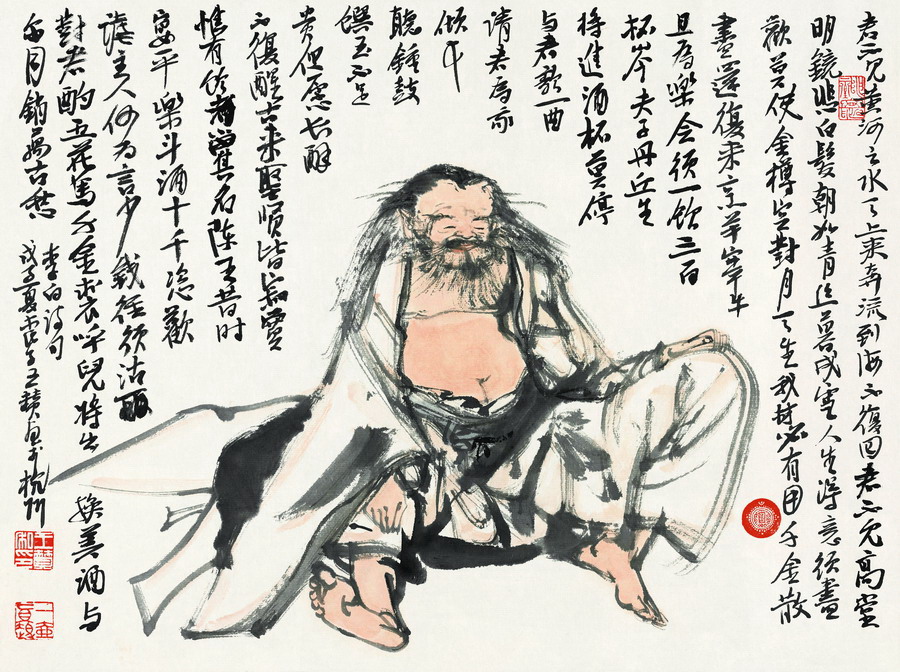 君不见黄河之水天上来奔流到海不復回君不见高堂
明鏡悲白髮朝如青丝暮成雪人生得意须盡
歡莫使金樽空對月天生我材必有用千金散
盡還復来烹羊宰牛
且為樂会须一飲三百
杯岑夫子丹丘生
将進酒杯莫停
与君歌一曲
請君為我
倾耳
聽鍾鼓
饌玉不足
贵但愿长醉
不復醒古来聖賢皆寂寞
惟有饮者留其名陈王昔时
宴平樂斗酒十千恣歡
谑主人何为言少錢径须沽取
對君酌五花馬千金裘呼兒将出
换美酒与
尔同銷萬古愁
李白诗句
戊子夏 王赞 于杭州